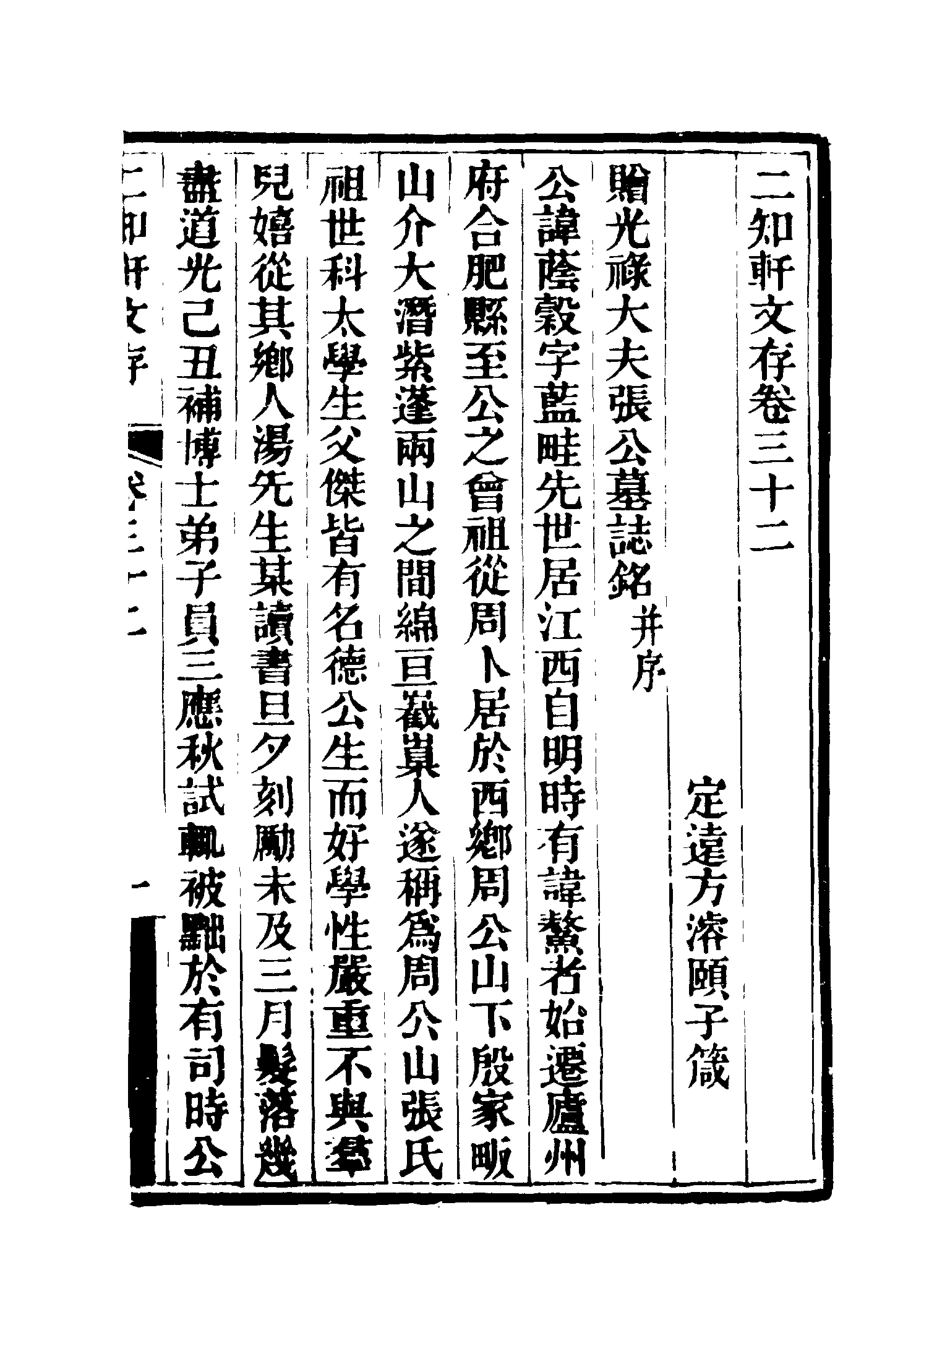 二知軒文存卷三十二
定遠方濬頤子箴
贈光祿大夫張公墓誌銘并序
公諱蔭穀字藍畦先世居江西自明時有諱鰲者始遷廬州
府合肥縣至公之曾祖從周卜居於西鄉周公山下殷家畈
山介大潛紫蓬兩山之間綿亘嶻嵲人遂稱爲周公山張氏
祖世科太學生父傑皆有名德公生而好學性嚴重不與羣
兒嬉從其鄉人湯先生某讀書旦夕刻勵未及三月髮落幾
盡道光己丑補博士弟子員三應秋試輒被黜於有司時公
二知軒文存 卷三十二 一